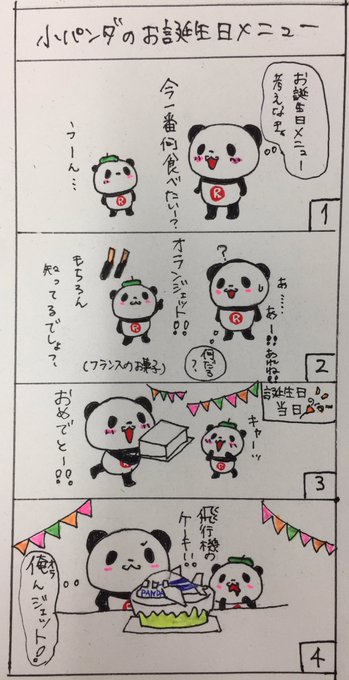 小パンダのお誕生日メニュー
お誕生日メニュー
考えなきゃ。
今一番何食べたい〜?
うーん…
R
R
1
あ……
あー!!あれね!!
?
何だろ
?
オランジェット!!
もちろん
知ってるでしょ?
(フランスのお菓子)
R
R
2
誕生日
当日
キャーッ
おめでとー!!
R
3
飛行機の
ケーキい!!
PANDA
俺んジェット!
オラ
R
4